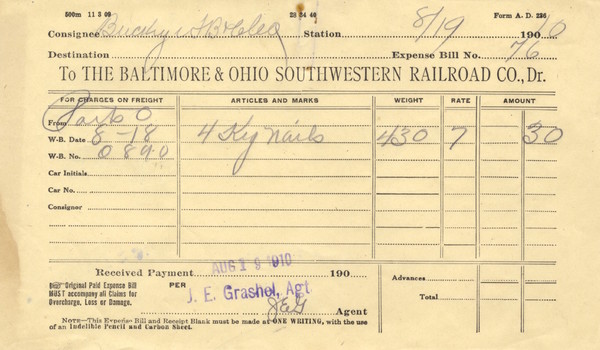 500m 11 3 09 28 64 46 Form A. D. 236
Consignee Station 8/19 1900
Destination Expense Bill No. 76
To THE BALTIMORE & OHIO SOUTHWESTERN RAILROAD CO., Dr.
FOR CHARGES ON FREIGHT ARTICLES AND MARKS WEIGHT RATE AMOUNT
From O
W-B. Date 8-18 4 Kg nails 430 7 30
W-B. No. 0890
Car Initials
Car No.
Consignor
Received Payment AUG 19 1910 190 Advances
Original Paid Expense Bill
MUST accompany all Claims for
Overcharge, Loss or Damage.
PER J. E. Grashel, Agt. Total
JEG Agent
NOTE—This Expense Bill and Receipt Blank must be made at ONE WRITING, with the use
of an Indelible Pencil and Carbon Sheet.